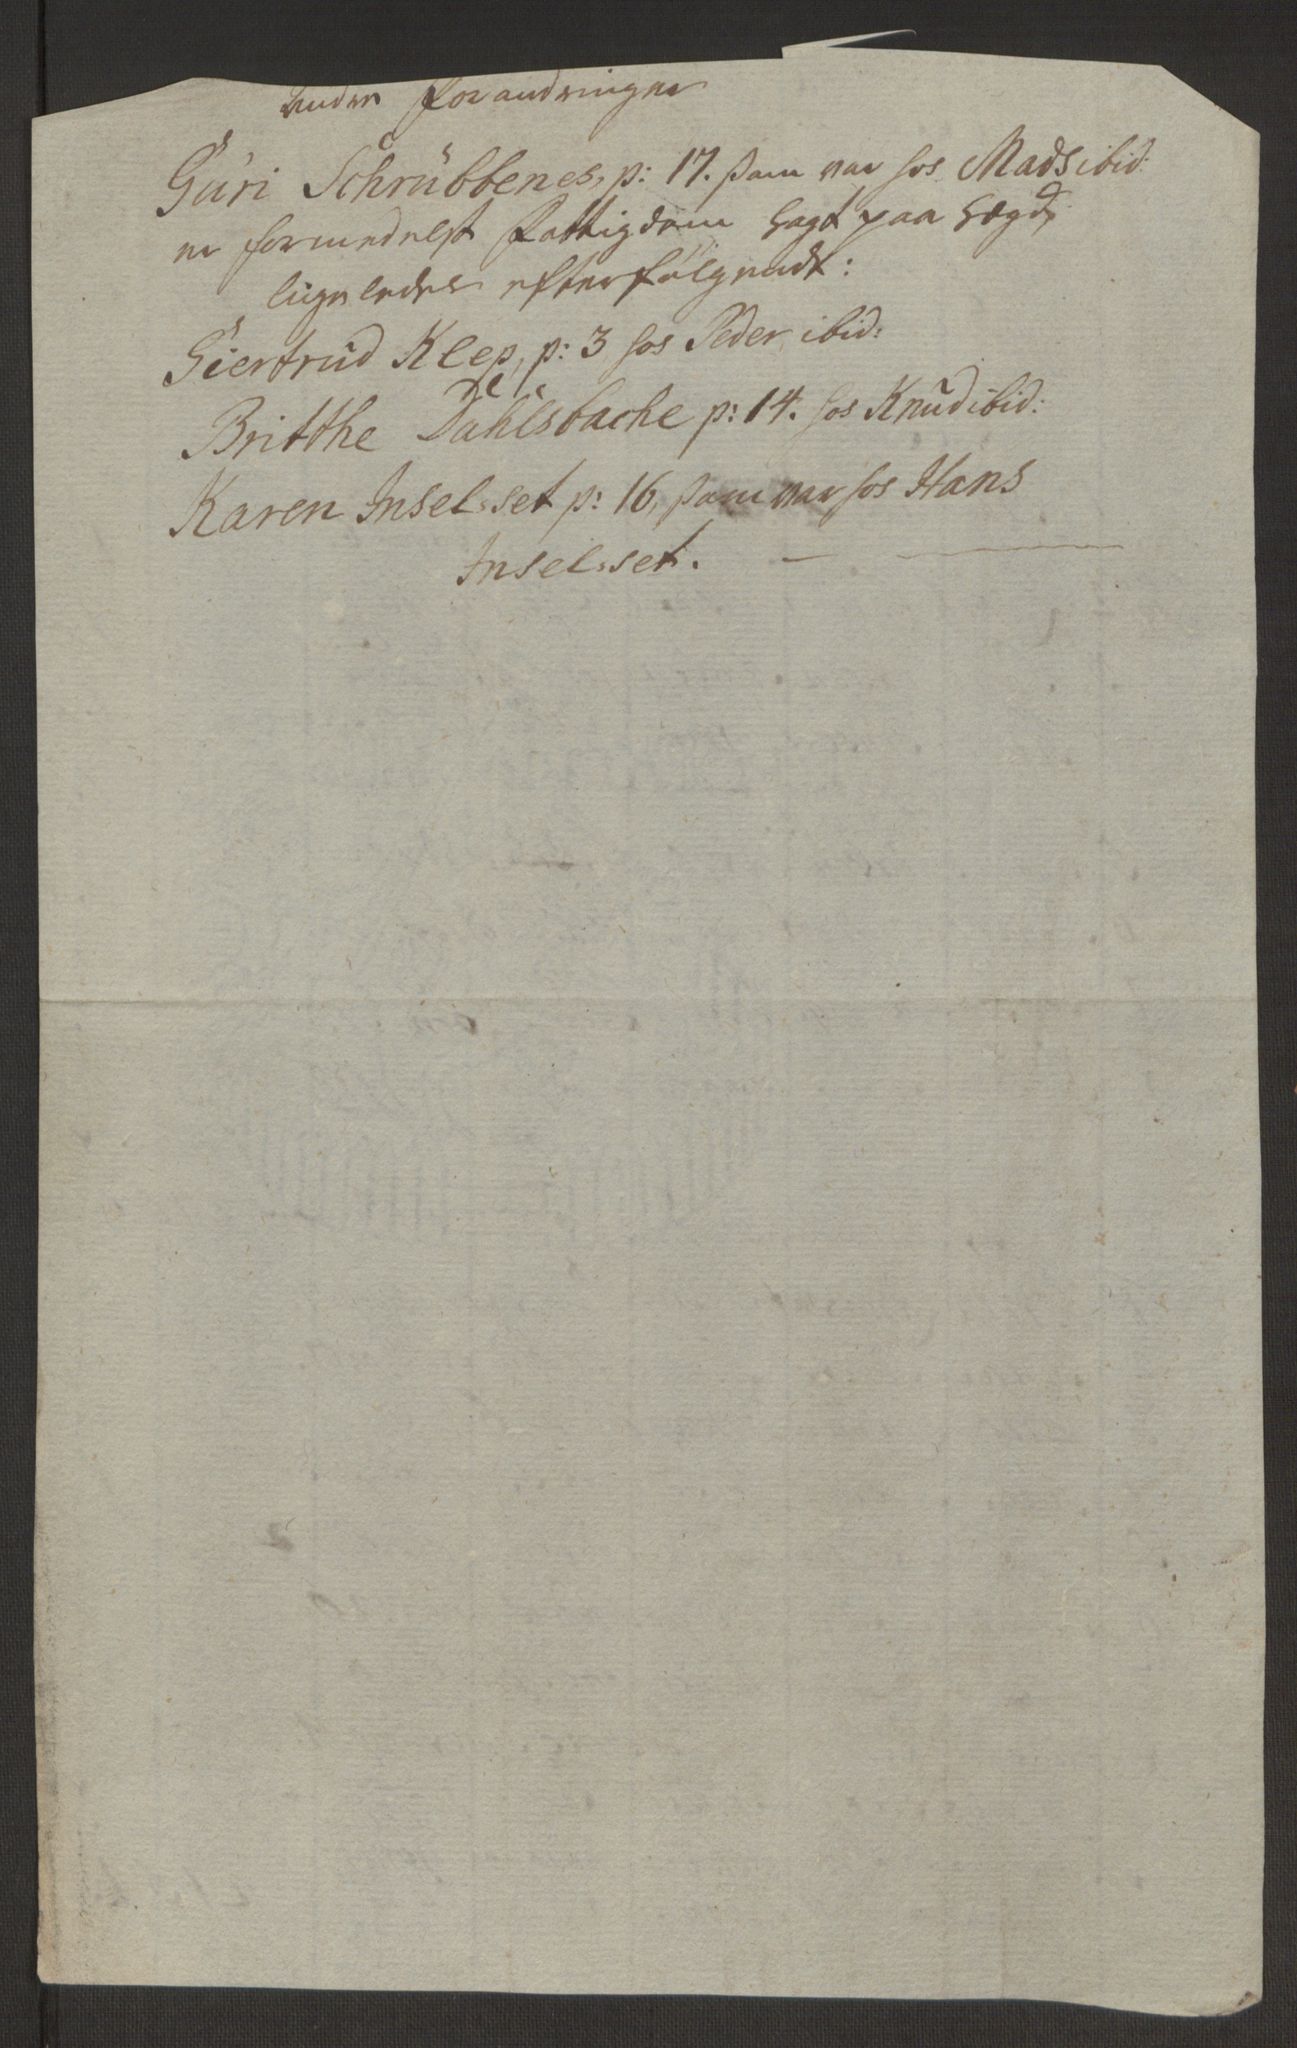 Andre Forandringer
Guri Schrubbenes, p: 17. som var hos Mads ibid:
er formedelst Fattigdom lagt paa Lægd,
ligeledes efterfølgende:
Giertrud Klep, p: 3 hos Peder ibid:
Britthe Dahlsbache p: 14. hos Knud ibid:
Karen Insel-set p: 16, som var hos Hans
Insel-set. —